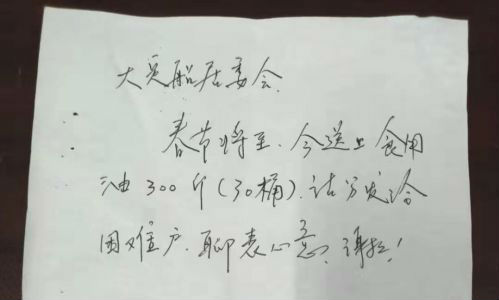 大吴船居委会.
春节将至.今送上食用
油300斤(30桶).请分发给
困难户.聊表心意.谢托!